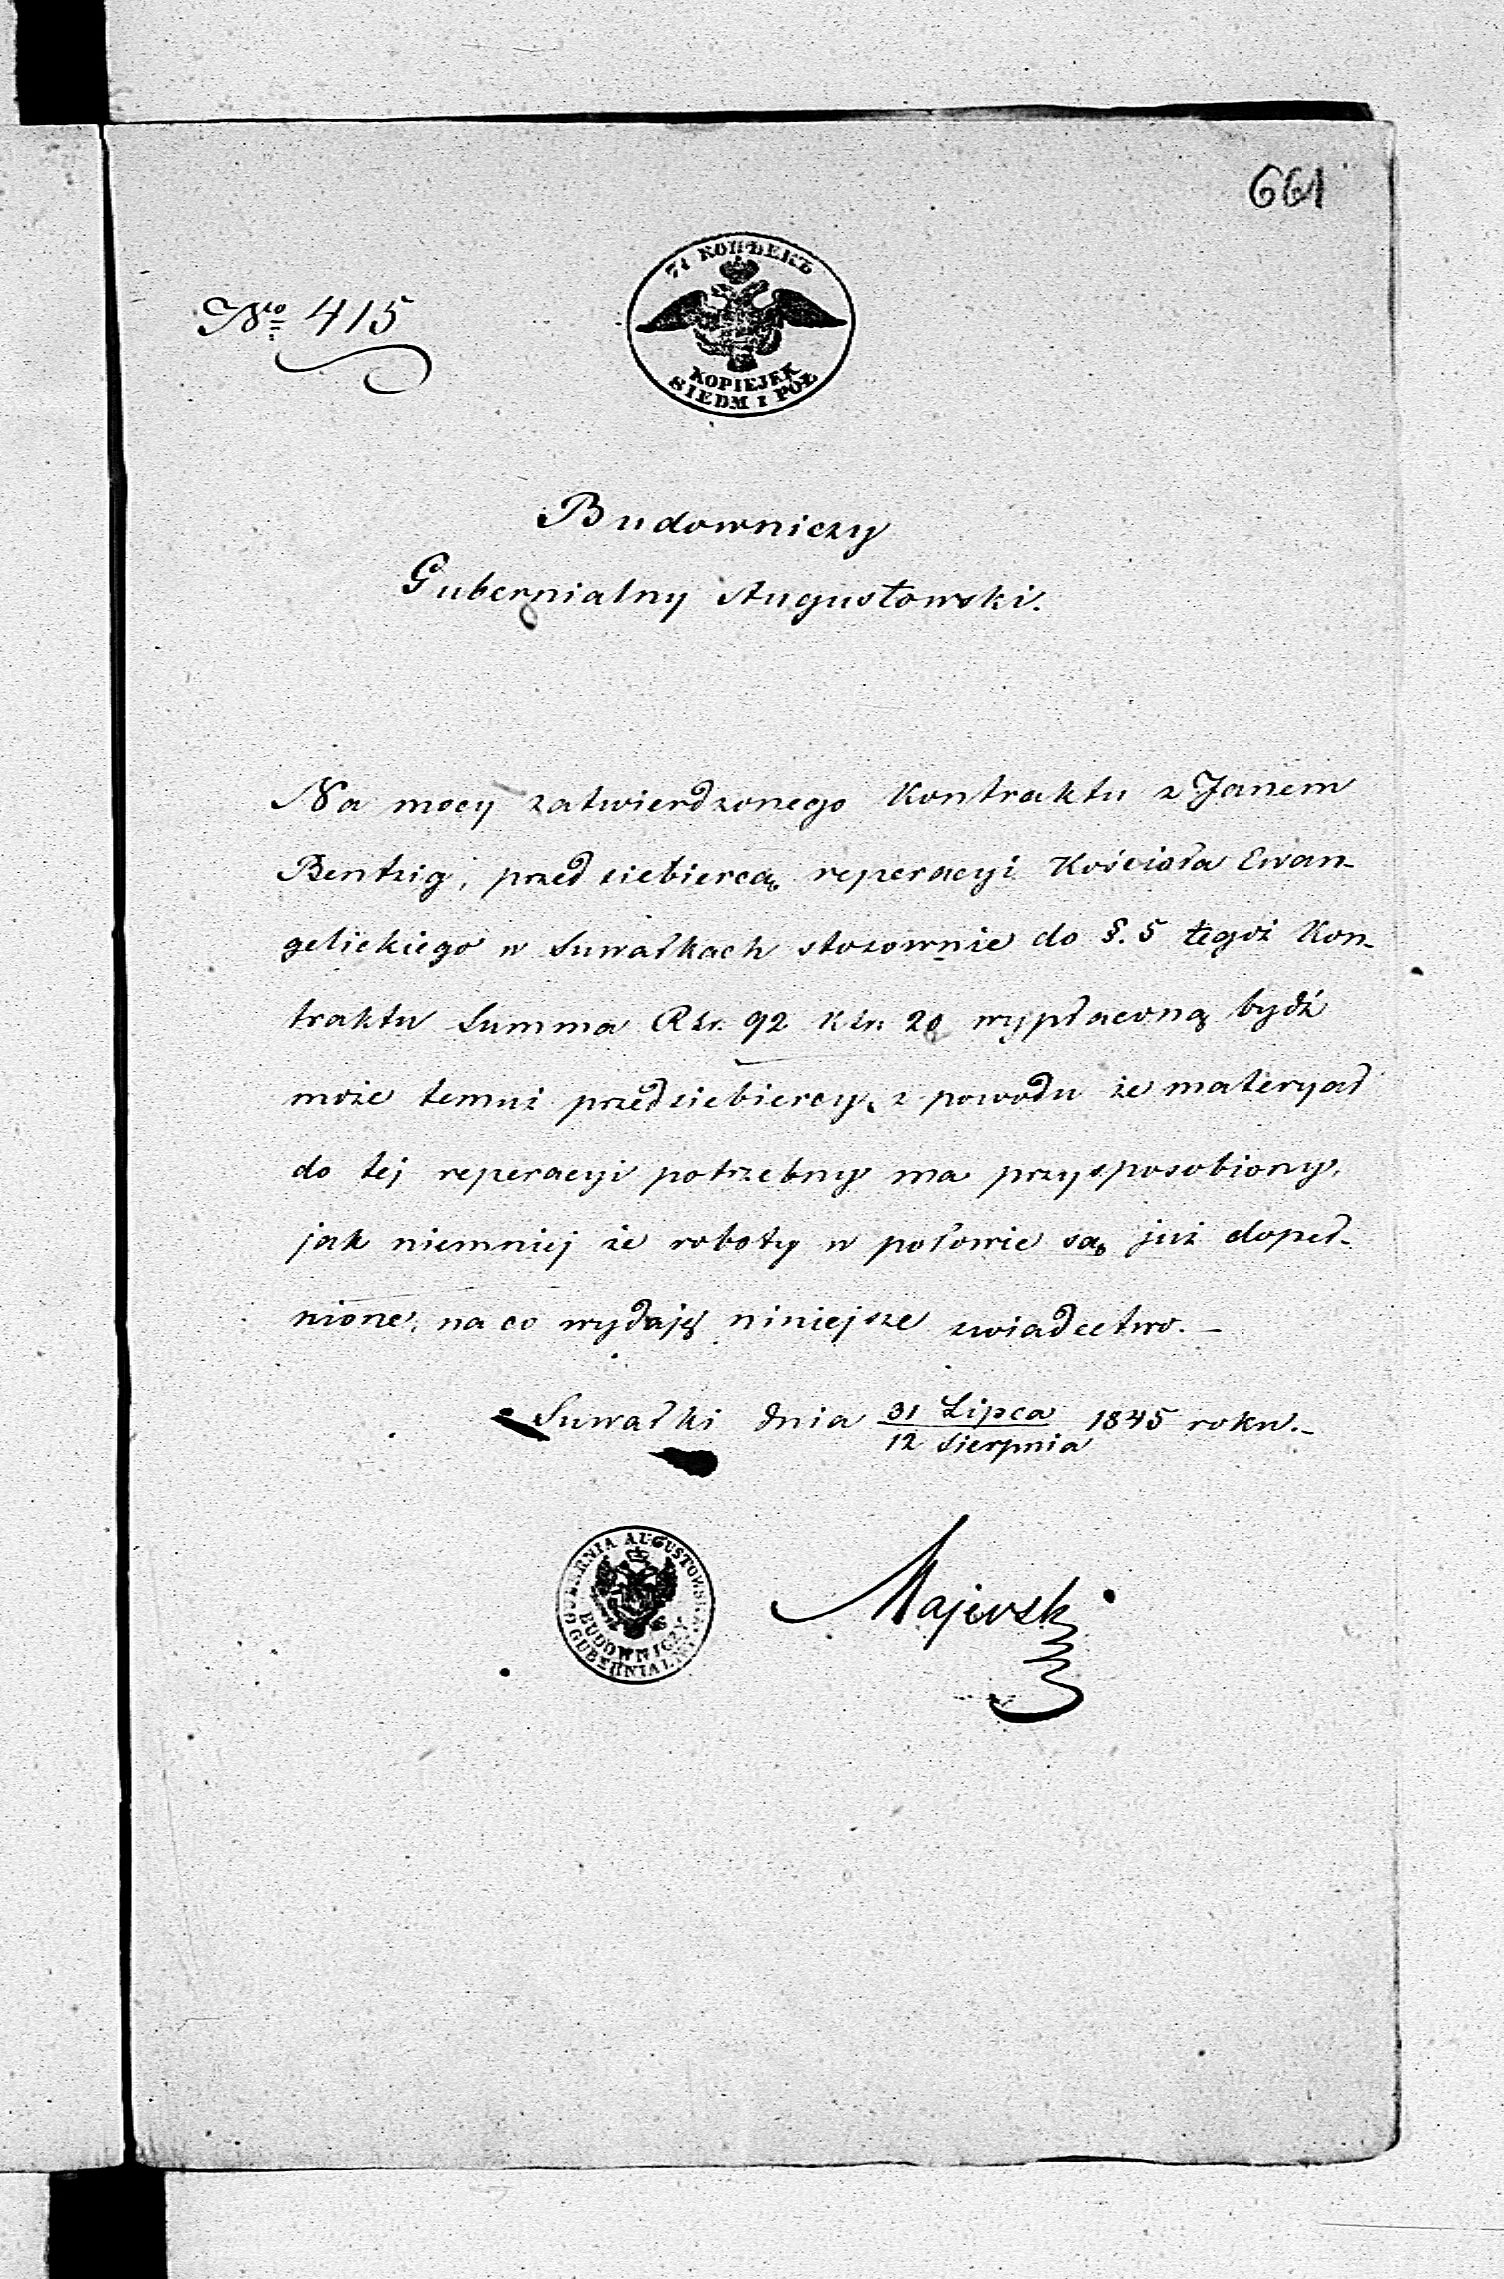 661
No 415
7½ КОПѢЕКЪ
KOPIEJEK
SIEDM I PÓŁ
Budowniczy
Gubernialny Augustowski.
Na mocy zatwierdzonego Kontraktu z Janem
Bentzig, przedsiebiercą reperacyi Kościoła Ewan-
gelickiego w Suwałkach stosownie do §. 5 tegoż Kon-
traktu Summa Rsr. 92 K sr. 20 wypłaconą bydź
może temuż przedsiebiercy, z powodu że materyał
do tej reperacyi potrzebny ma przysposobiony,
jak niemniej że roboty w połowie są już dopeł-
nione, na co wydaję niniejsze zwiadectwo. –
Suwałki dnia 31 Lipca / 12 Sierpnia 1845 roku. –
GUBERNIA AUGUSTOWSKA
BUDOWNICZY
GUBERNIALNY
Majewski